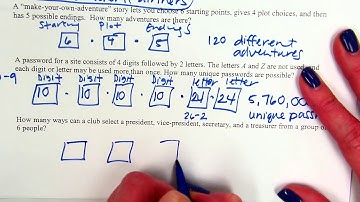 A "make-your-own-adventure" story lets you choose 6 starting points, gives 4 plot choices, and then
has 5 possible endings. How many adventures are there?
Starting Plot Endings
6 · 4 · 5 120 different
adventures
A password for a site consists of 4 digits followed by 2 letters. The letters A and Z are not used, and
each digit or letter may be used more than once. How many unique passwords are possible?
-9 Digit Digit Digit Digit letter letter
10 · 10 · 10 · 10 · 24 · 24 5,760,00
26-2 unique pass
How many ways can a club select a president, vice-president, secretary, and a treasurer from a group of
6 people?